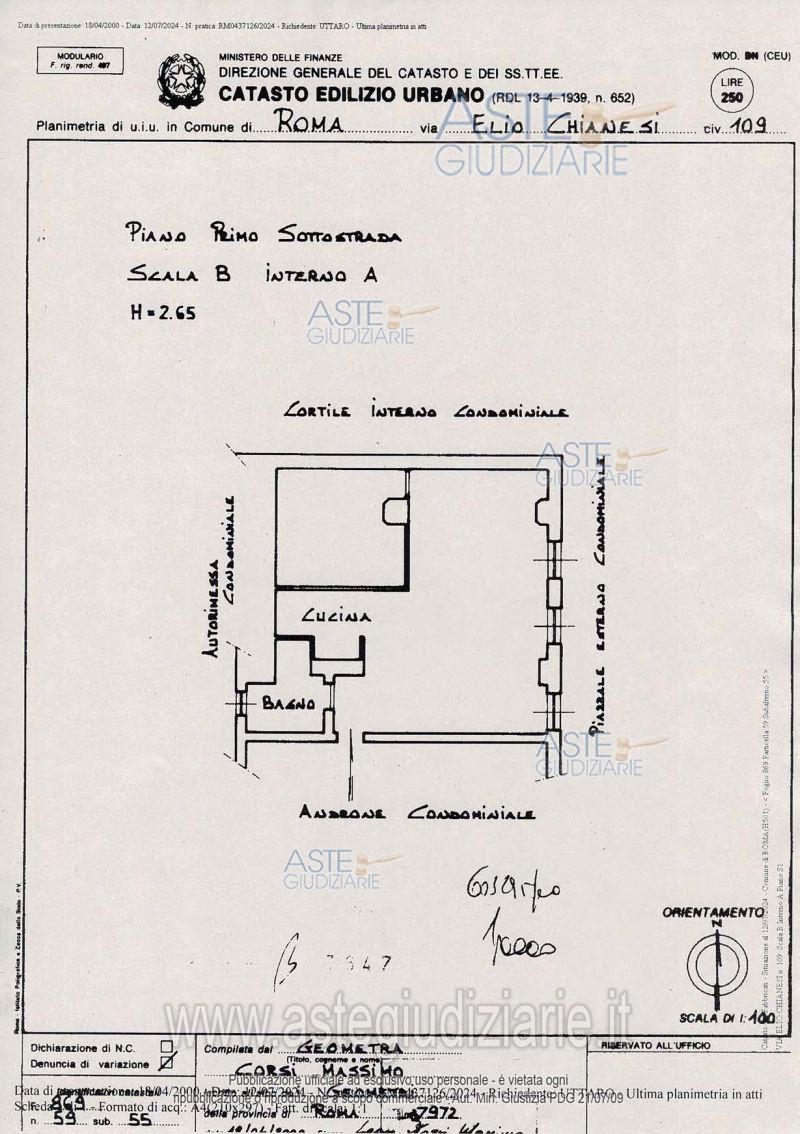 Data di presentazione: 18/04/2000 - Data: 12/07/2024 - N. pratica: RM0437126/2024 - Richiedente: UTTARO - Ultima planimetria in atti
MODULARIO
F. rig. rend. 497
MINISTERO DELLE FINANZE
DIREZIONE GENERALE DEL CATASTO E DEI SS.TT.EE.
CATASTO EDILIZIO URBANO (RDL 13-4-1939, n. 652)
MOD. BN (CEU)
LIRE
250
Planimetria di u.i.u. in Comune di ROMA via ELIO CHIANESI civ. 109
ASTE
GIUDIZIARIE
PIANO PRIMO SOTTOSTRADA
SCALA B INTERNO A
H = 2.65
ASTE
GIUDIZIARIE
CORTILE INTERNO CONDOMINIALE
ASTE
GIUDIZIARIE
AUTORIMESSA
CONDOMINIALE
PIAZZALE ESTERNO CONDOMINIALE
CUCINA
BAGNO
ASTE
GIUDIZIARIE
ANDRONE CONDOMINIALE
ASTE
GIUDIZIARIE
ORIENTAMENTO
N
SCALA DI 1: 100
Catasto dei Fabbricati - Situazione al 12/07/2024 - Comune di ROMA(H501) - < Foglio 869 Particella 59 Subalterno 55 >
VIA ELIO CHIANESI n. 109 Scala B Interno A Piano S1
www.astegiudiziarie.it
Dichiarazione di N.C.
Denuncia di variazione
Compilata dal GEOMETRA
(Titolo, cognome e nome)
CORSI MASSIMO
RISERVATO ALL'UFFICIO
Pubblicazione ufficiale ad esclusivo uso personale - è vietata ogni
ripubblicazione o riproduzione a scopo commerciale - Aut. Min. Giustizia PDG 21/07/09
Scheda - Formato di acq.: A4(210x297) - Fatt. di scala: 1:1
F. 869
n. 59 sub. 55
della provincia di ROMA 7972